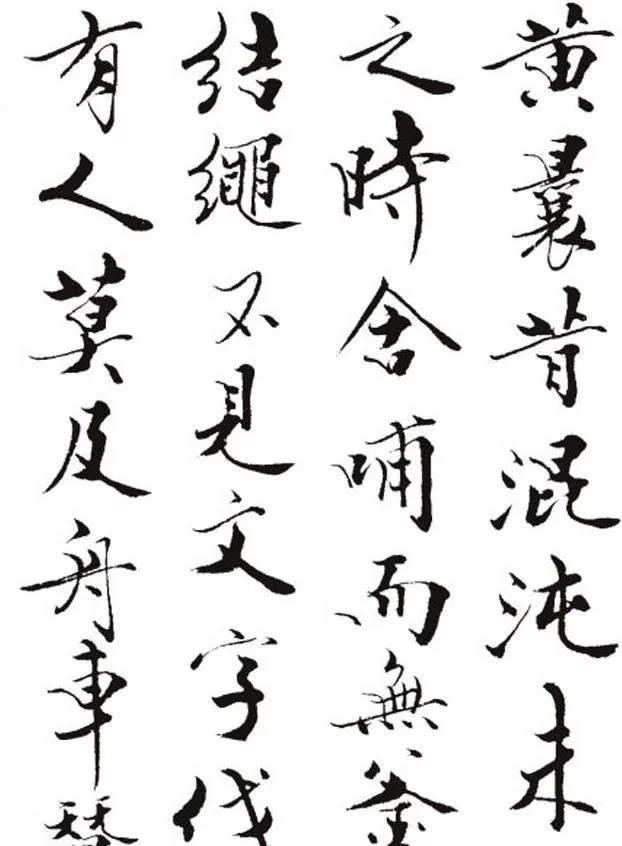 黄曩昔混沌未
之時含哺而無釜
結繩不見文字伐
有人莫及舟車